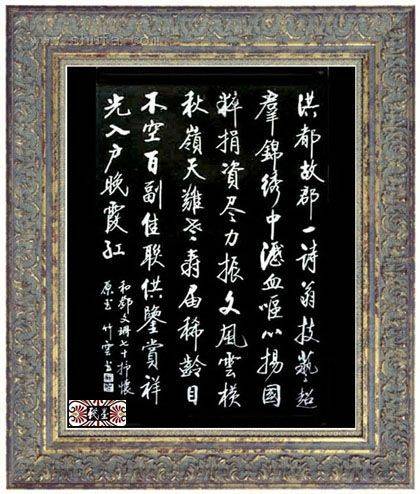 洪都故郡一詩翁技藝超
羣錦繡中瀝血嘔心揚國
粹捐資尽力振文風雲橫
秋嶺天難老壽届稀齡目
不空百副佳聯供鑒賞祥
光入户晚霞紅
和鄧文珊七十抒懷
原玉 竹雲書